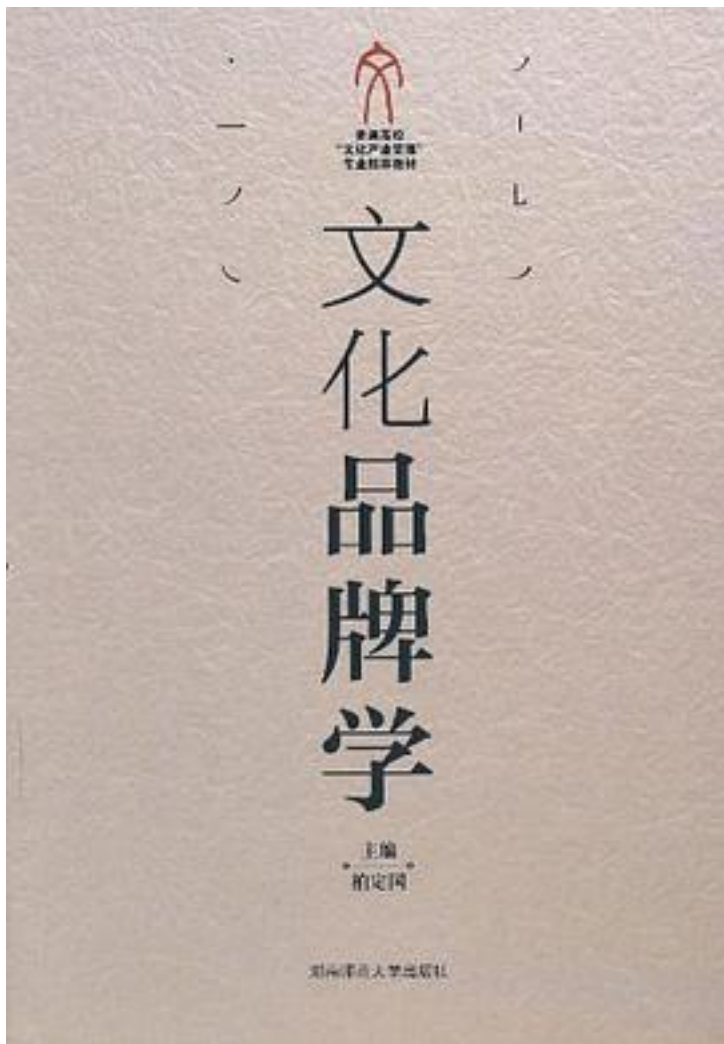 普通高校
“文化产业管理”
专业推荐教材
文化品牌学
主编
柏定国
湖南师范大学出版社